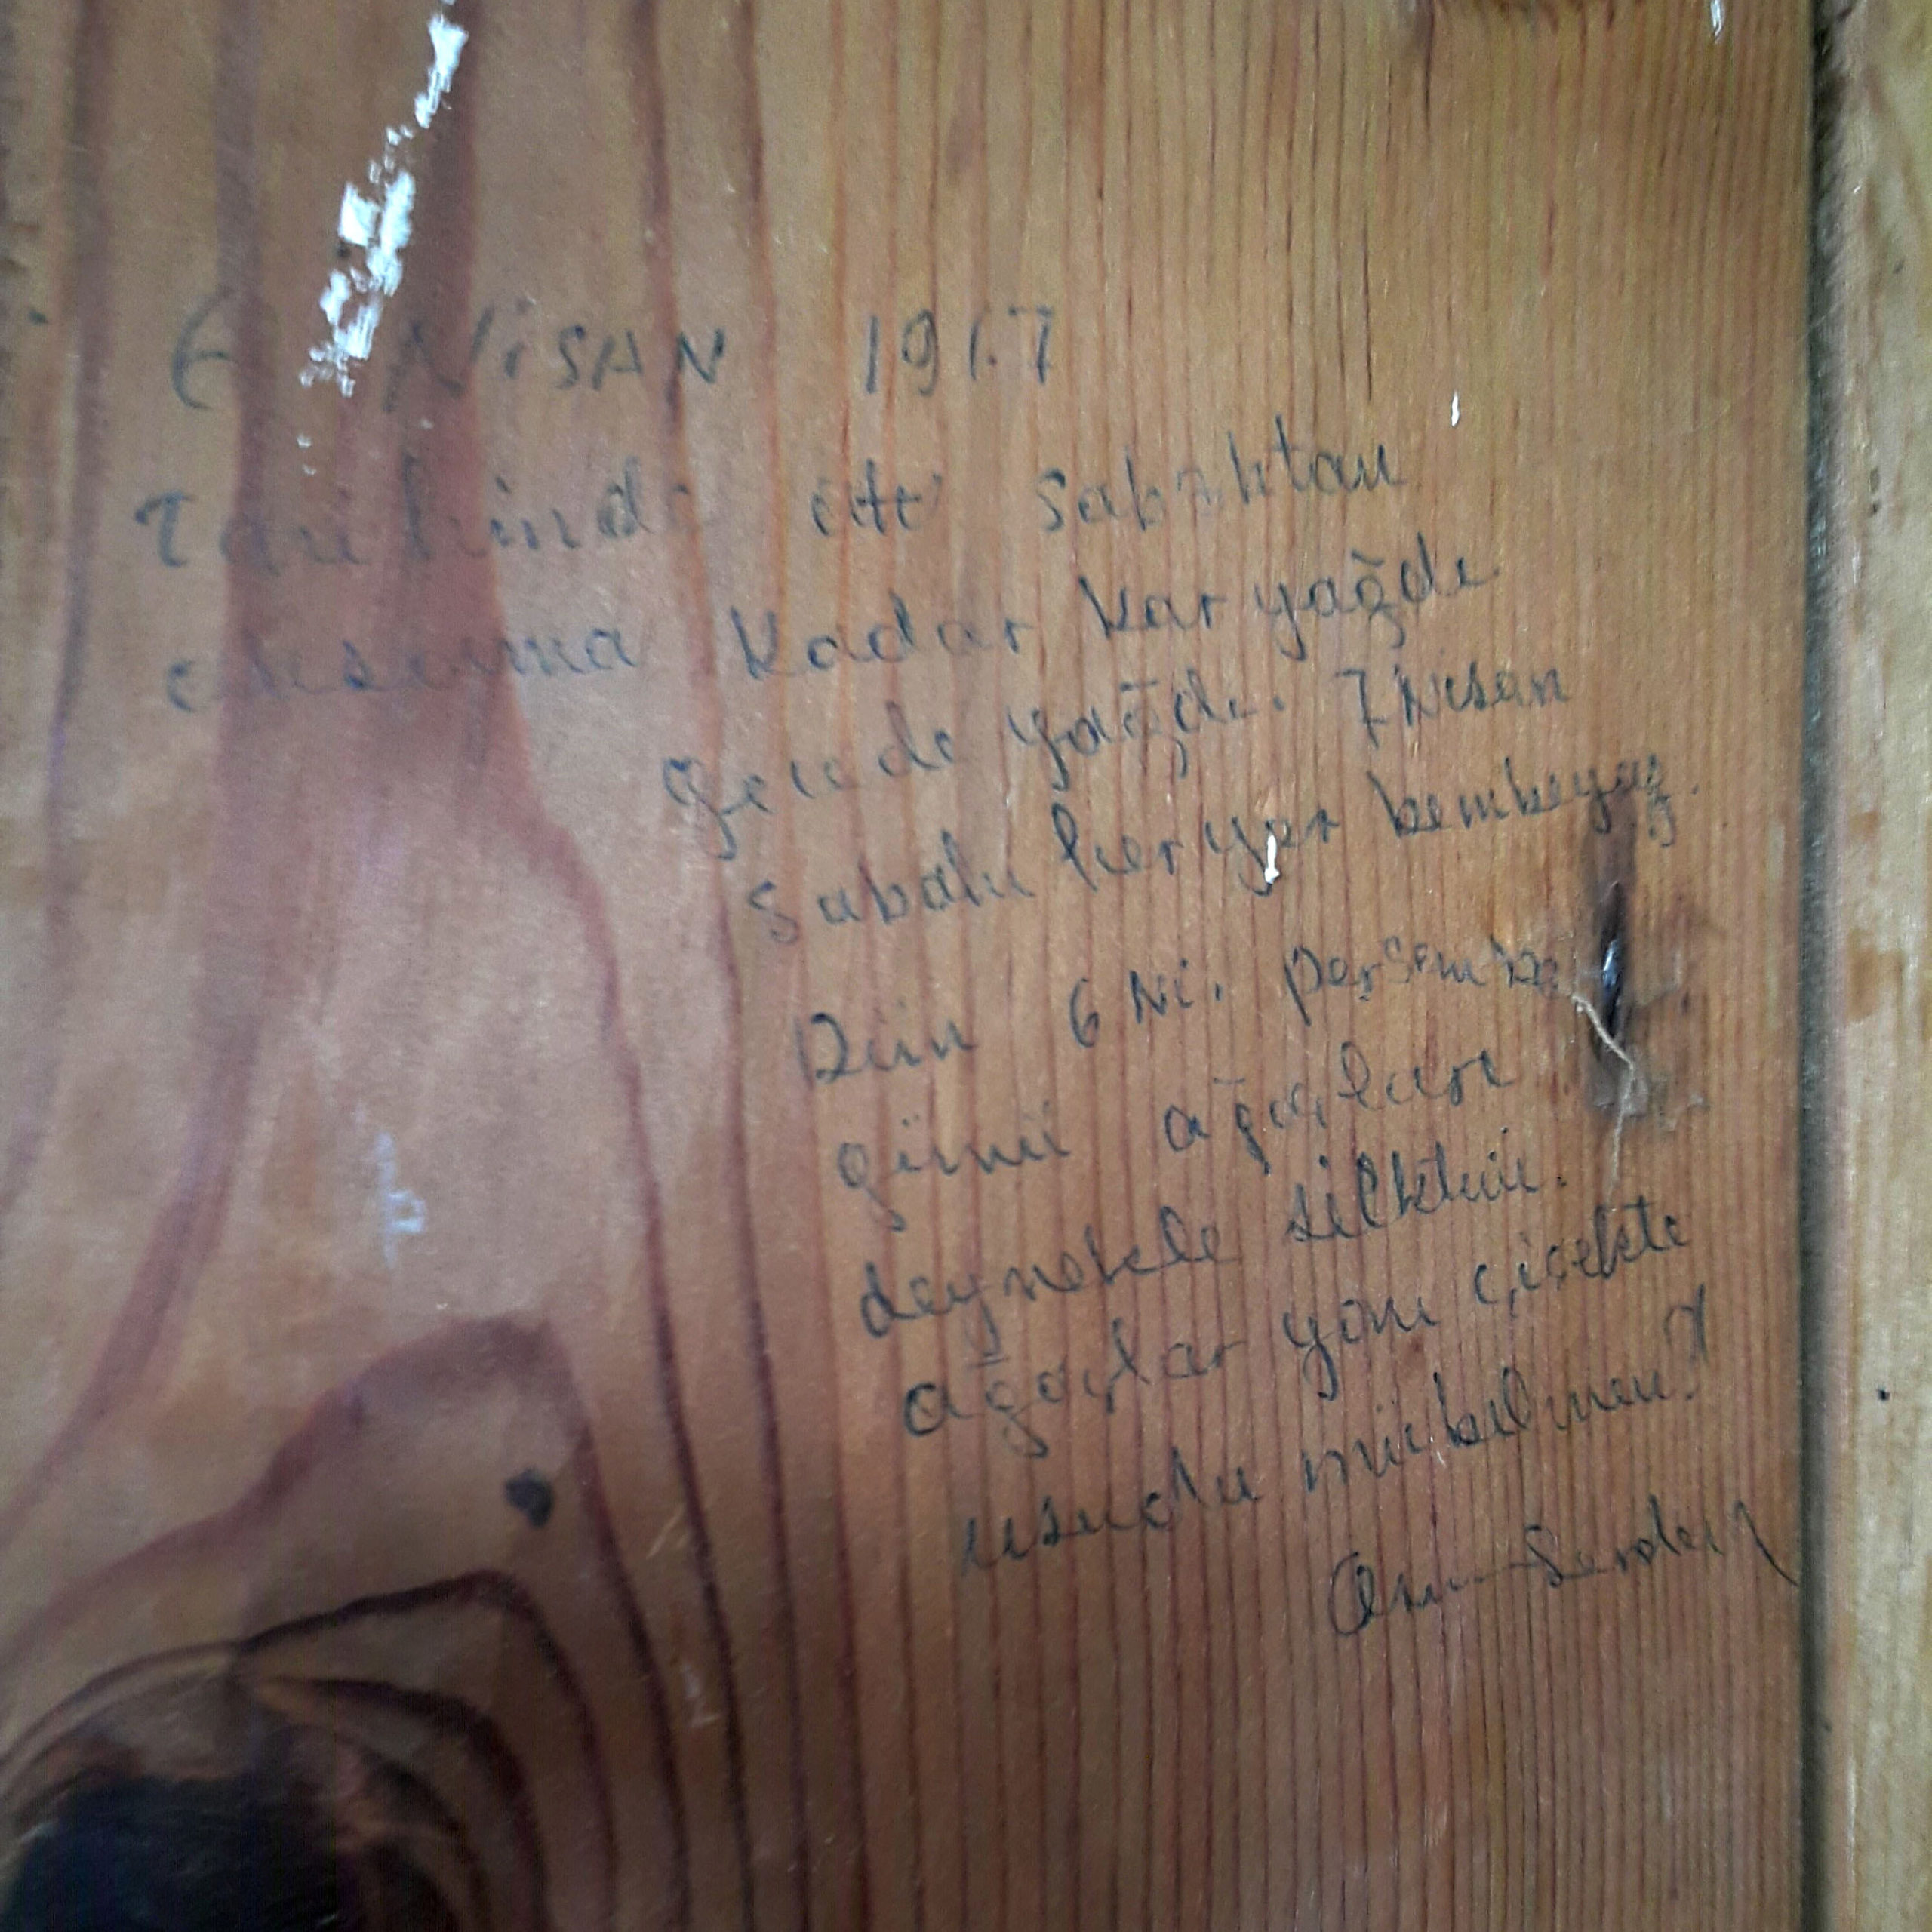 6 NiSAN 1967
Tarihinde sabahtan
akşama kadar kar yağdı
gecede yağdı. 7 Nisan
Sabahı her yer bembeyaz.
Dün 6 Ni. perşembe
günü ağaçları
deynekle silktim.
ağaçlar yarı çiçekte
usudu mu bilmem?